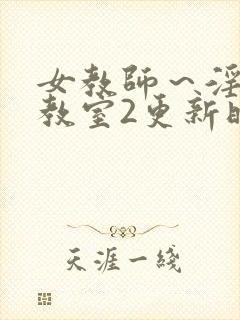 女教師～淫
教室2更新時
天涯一綫